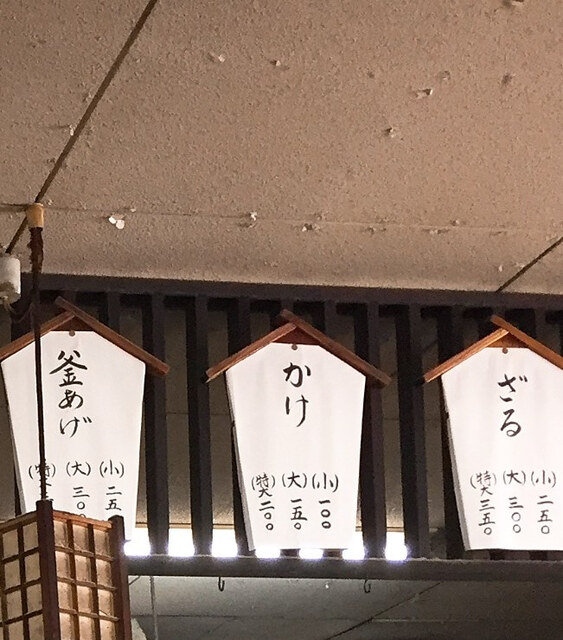 ざる
(小)二五〇
(大)三〇〇
(特大)三五〇
かけ
(小)一〇〇
(大)一五〇
(特大)二〇〇
釜あげ
(小)二五
(大)三〇